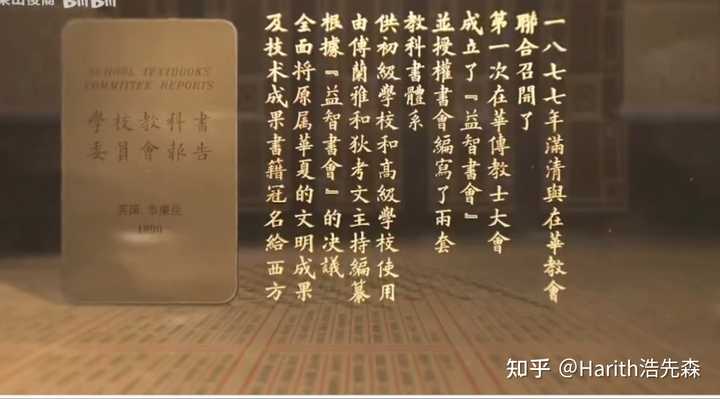 SCHOOL TEXTBOOKS
COMMITTEE REPORTS
學校教科書
委員會報告
1890
一八七七年滿清與在華教會
聯合召開了
第一次在華傳教士大會
成立了『益智書會』
並授權書會編寫了兩套
教科書體系
供初級學校和高級學校使用
由傅蘭雅和狄考文主持編纂
根據『益智書會』的决議
全面將原属華夏的文明成果
及技术成果書籍冠名給西方
知乎 @Harith浩先森